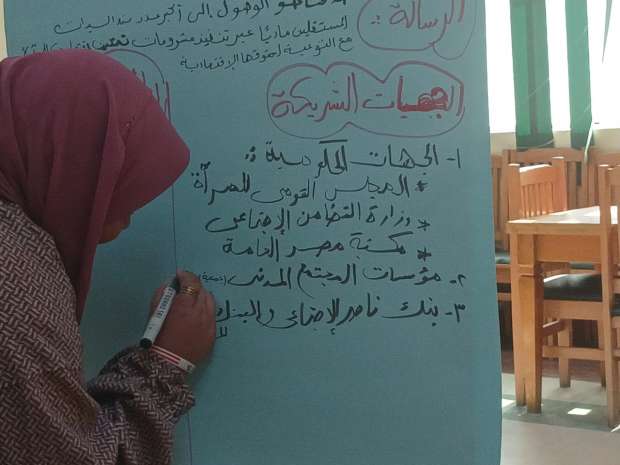 الوصول إلى أكبر عدد من السيدات
المستقلين ماديًا عبر تنفيذ مشروعات
مع التوعية لحقوقها الإقتصادية
الرسالة:
الجهات الشريكة
١- الجهات الحكومية:
* المجلس القومى للمرأة
* وزارة التضامن الإجتماعى
* مكتبة مصر العامة
٢- مؤسسات المجتمع المدنى
٣- بنك ناصر الإجتماعى و البنك